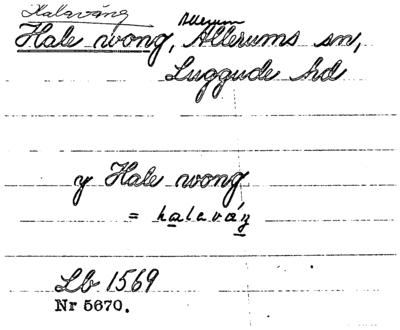 Halavång
Allerum
Hale wong, Allerums sn,
Luggude hd
y Hale wong
= halaváŋ
Lb 1569
Nr 5670.